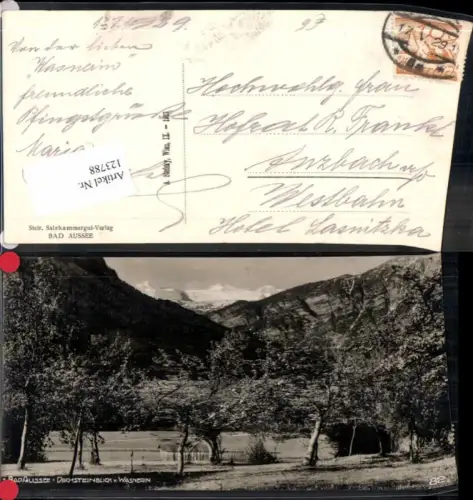 93
Von der lieben
"Wasnerin"
freundliche
Pfingstgrüße
Maria
Artikel Nr.
123788
Hochwohlg. Frau
Hofrat R. Frankl
Anzbach a/d
Westbahn
Hotel Lasnitzka
Steir. Salzkammergut-Verlag
BAD AUSSEE
BAD AUSSEE - DACHSTEINBLICK v. WASNERIN